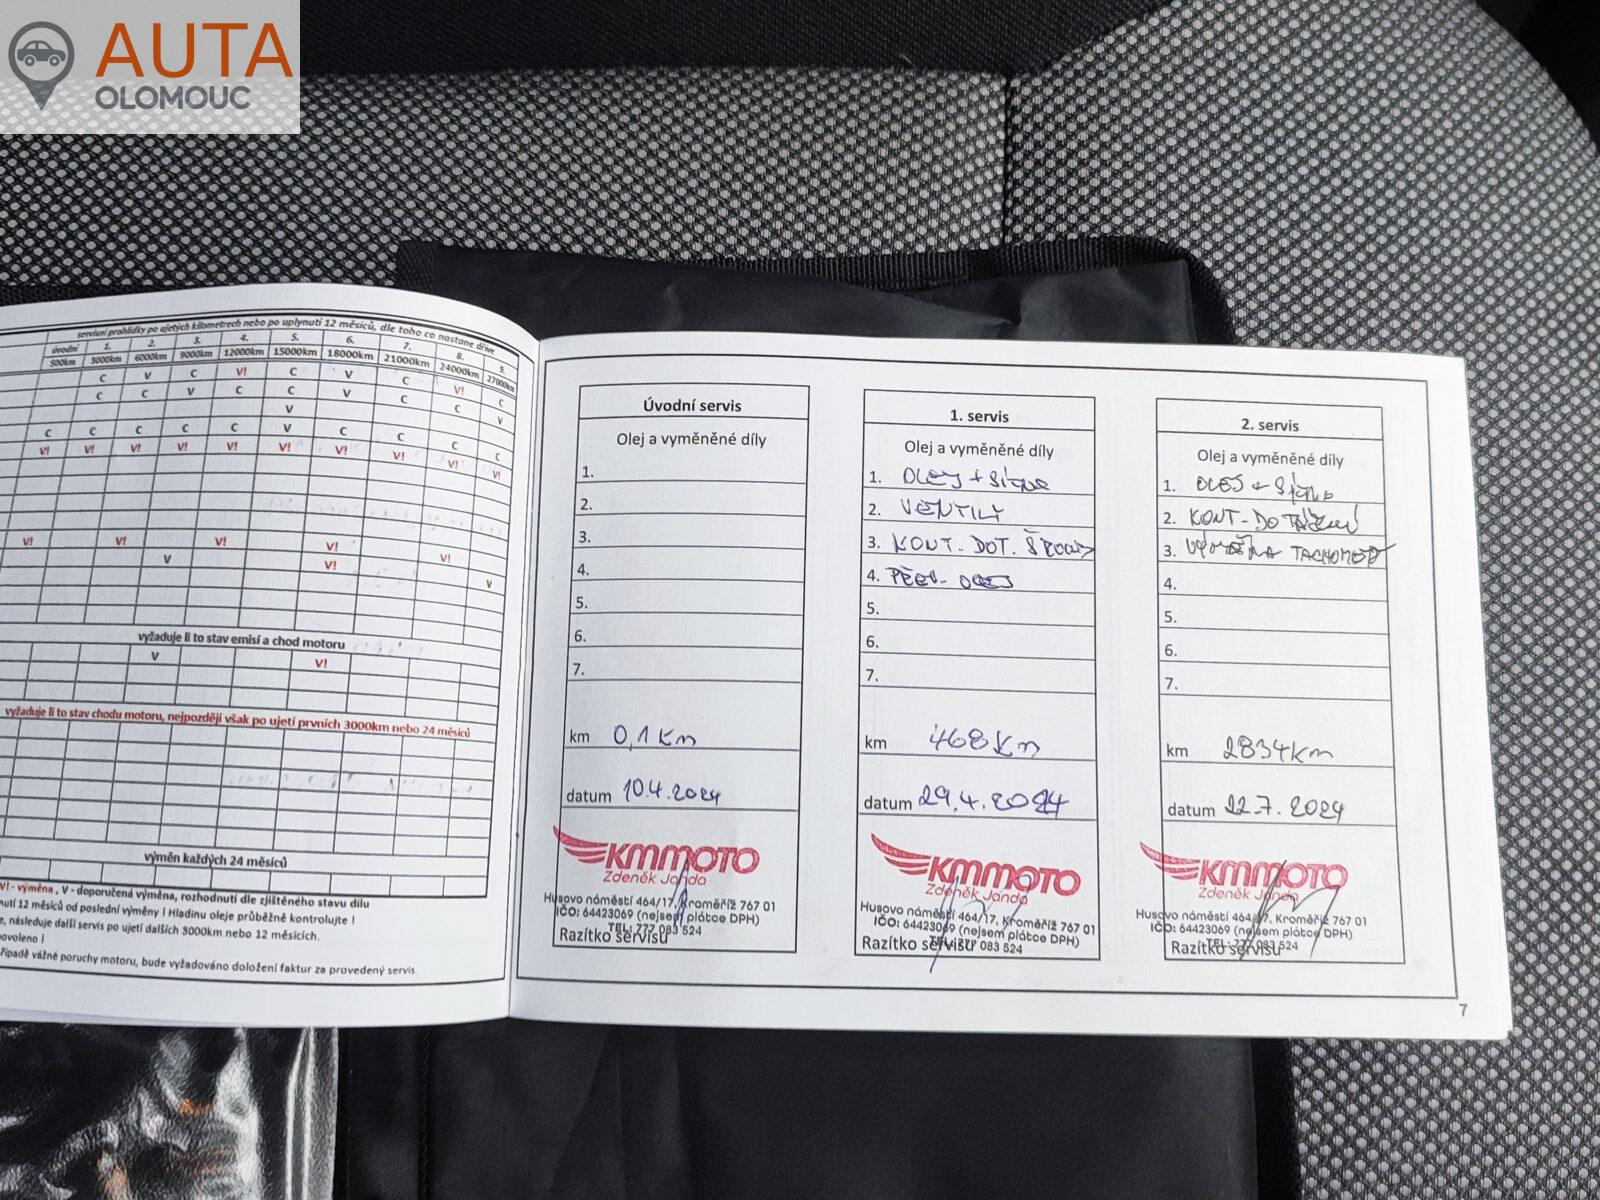 AUTA
OLOMOUC
servisní prohlídky po ujetých kilometrech nebo po uplynutí 12 měsíců, dle toho co nastane dříve
úvodní 1. 2. 3. 4. 5. 6. 7. 8. 9.
500km 3000km 6000km 9000km 12000km 15000km 18000km 21000km 24000km 27000km
C V C V! C V C V! C
C C V C C V C C V
V
C C C C C V C C C C
V! V! V! V! V! V! V! V! V! V!
V! V! V! V! V!
V V! V
vyžaduje li to stav emisí a chod motoru
V V!
vyžaduje li to stav chodu motoru, nejpozději však po ujetí prvních 3000km nebo 24 měsíců
výměn každých 24 měsíců
V! - výměna , V - doporučená výměna, rozhodnutí dle zjištěného stavu dílu
nutí 12 měsíců od poslední výměny ! Hladinu oleje průběžně kontrolujte !
e, následuje další servis po ujetí dalších 3000km nebo 12 měsících.
ovoleno !
řípadě vážné poruchy motoru, bude vyžadováno doložení faktur za provedený servis.
Úvodní servis
Olej a vyměněné díly
1.
2.
3.
4.
5.
6.
7.
km 0,1 km
datum 10.4.2024
KMMOTO
Zdeněk Janda
Husovo náměstí 464/17, Kroměříž 767 01
IČO: 64423069 (nejsem plátce DPH)
TEL: 777 083 524
Razítko servisu
1. servis
Olej a vyměněné díly
1. OLEJ +
2. VENTILY
3. KONT. DOT. ŠROUB
4. PŘEV. OLEJ
5.
6.
7.
km 468 km
datum 29.4.2024
KMMOTO
Zdeněk Janda
Husovo náměstí 464/17, Kroměříž 767 01
IČO: 64423069 (nejsem plátce DPH)
TEL: 777 083 524
Razítko servisu
2. servis
Olej a vyměněné díly
1. OLEJ +
2. KONT. DOTAŽENÍ
3. VÝMĚNA
4.
5.
6.
7.
km 2834 km
datum 22.7.2024
KMMOTO
Zdeněk Janda
Husovo náměstí 464/17, Kroměříž 767 01
IČO: 64423069 (nejsem plátce DPH)
TEL: 777 083 524
Razítko servisu
7